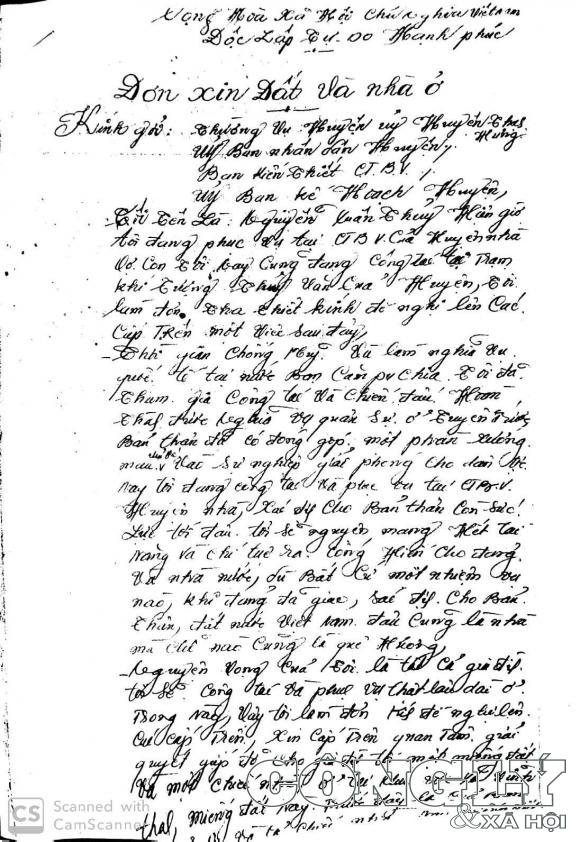 Cộng Hòa Xã Hội Chủ nghĩa Việt nam
Độc Lập Tự Do Hạnh phúc
Đơn xin Đất và nhà ở
Kính gởi: Thường Vụ Huyện ủy Huyện
Hưng
Uỷ Ban nhân dân Huyện,
Ban kiến thiết C.T.B.V.,
Uỷ Ban kế Hoạch Huyện,
Tôi tên Là: Nguyễn Xuân Thuỷ Hiện giờ
tôi đang phục vụ tại CTBV Của Huyện nhà
Vợ Con Tôi nay Cũng đang Công tác tại Trạm
khí Tượng Thuỷ Văn Của Huyện, Tôi
làm đơn Tha thiết kính đề nghị lên Các
Cấp Trên một Việc Sau đây,
- Thời gian Chống Mỹ Và làm nghĩa Vụ
quốc tế tại nước Bạn Cam pu Chia Tôi đã
Tham gia Công tác Và Chiến đấu Hoàn
Thành nghĩa Vụ quân Sự ở
Bản thân đã có đóng góp một phần Xương
máu Vào Sự nghiệp giải phóng Cho dân tộc
nay tôi đang công tác Và phục vụ tại CTBV
Huyện nhà Cho Bản thân Còn Sức
Lực tới đâu tôi Sẽ nguyện mang Hết tài
năng Và chí tuệ ra Cống Hiến Cho đảng
Và nhà nước, dù Bất Cứ một nhiệm vụ
nào, khi đảng đã giao, Cho Bản
Thân, đất nước Việt Nam đâu Cũng là nhà
mà chỗ nào Cũng là quê Hương,
- Nguyện Vọng Của Tôi là tất Cả gia đình
tôi Sẽ Công tác Và phục Vụ thật lâu dài ở
Trong này, Vậy tôi làm đơn đề nghị lên
Các cấp Trên, Xin Cấp Trên quan Tâm giải
quyết giúp đỡ Cho gia đình tôi một miếng đất
Và một
miếng đất này. Trước đây là
CS Scanned with
CamScanner
CÔNG LÝ
& XÃ HỘI